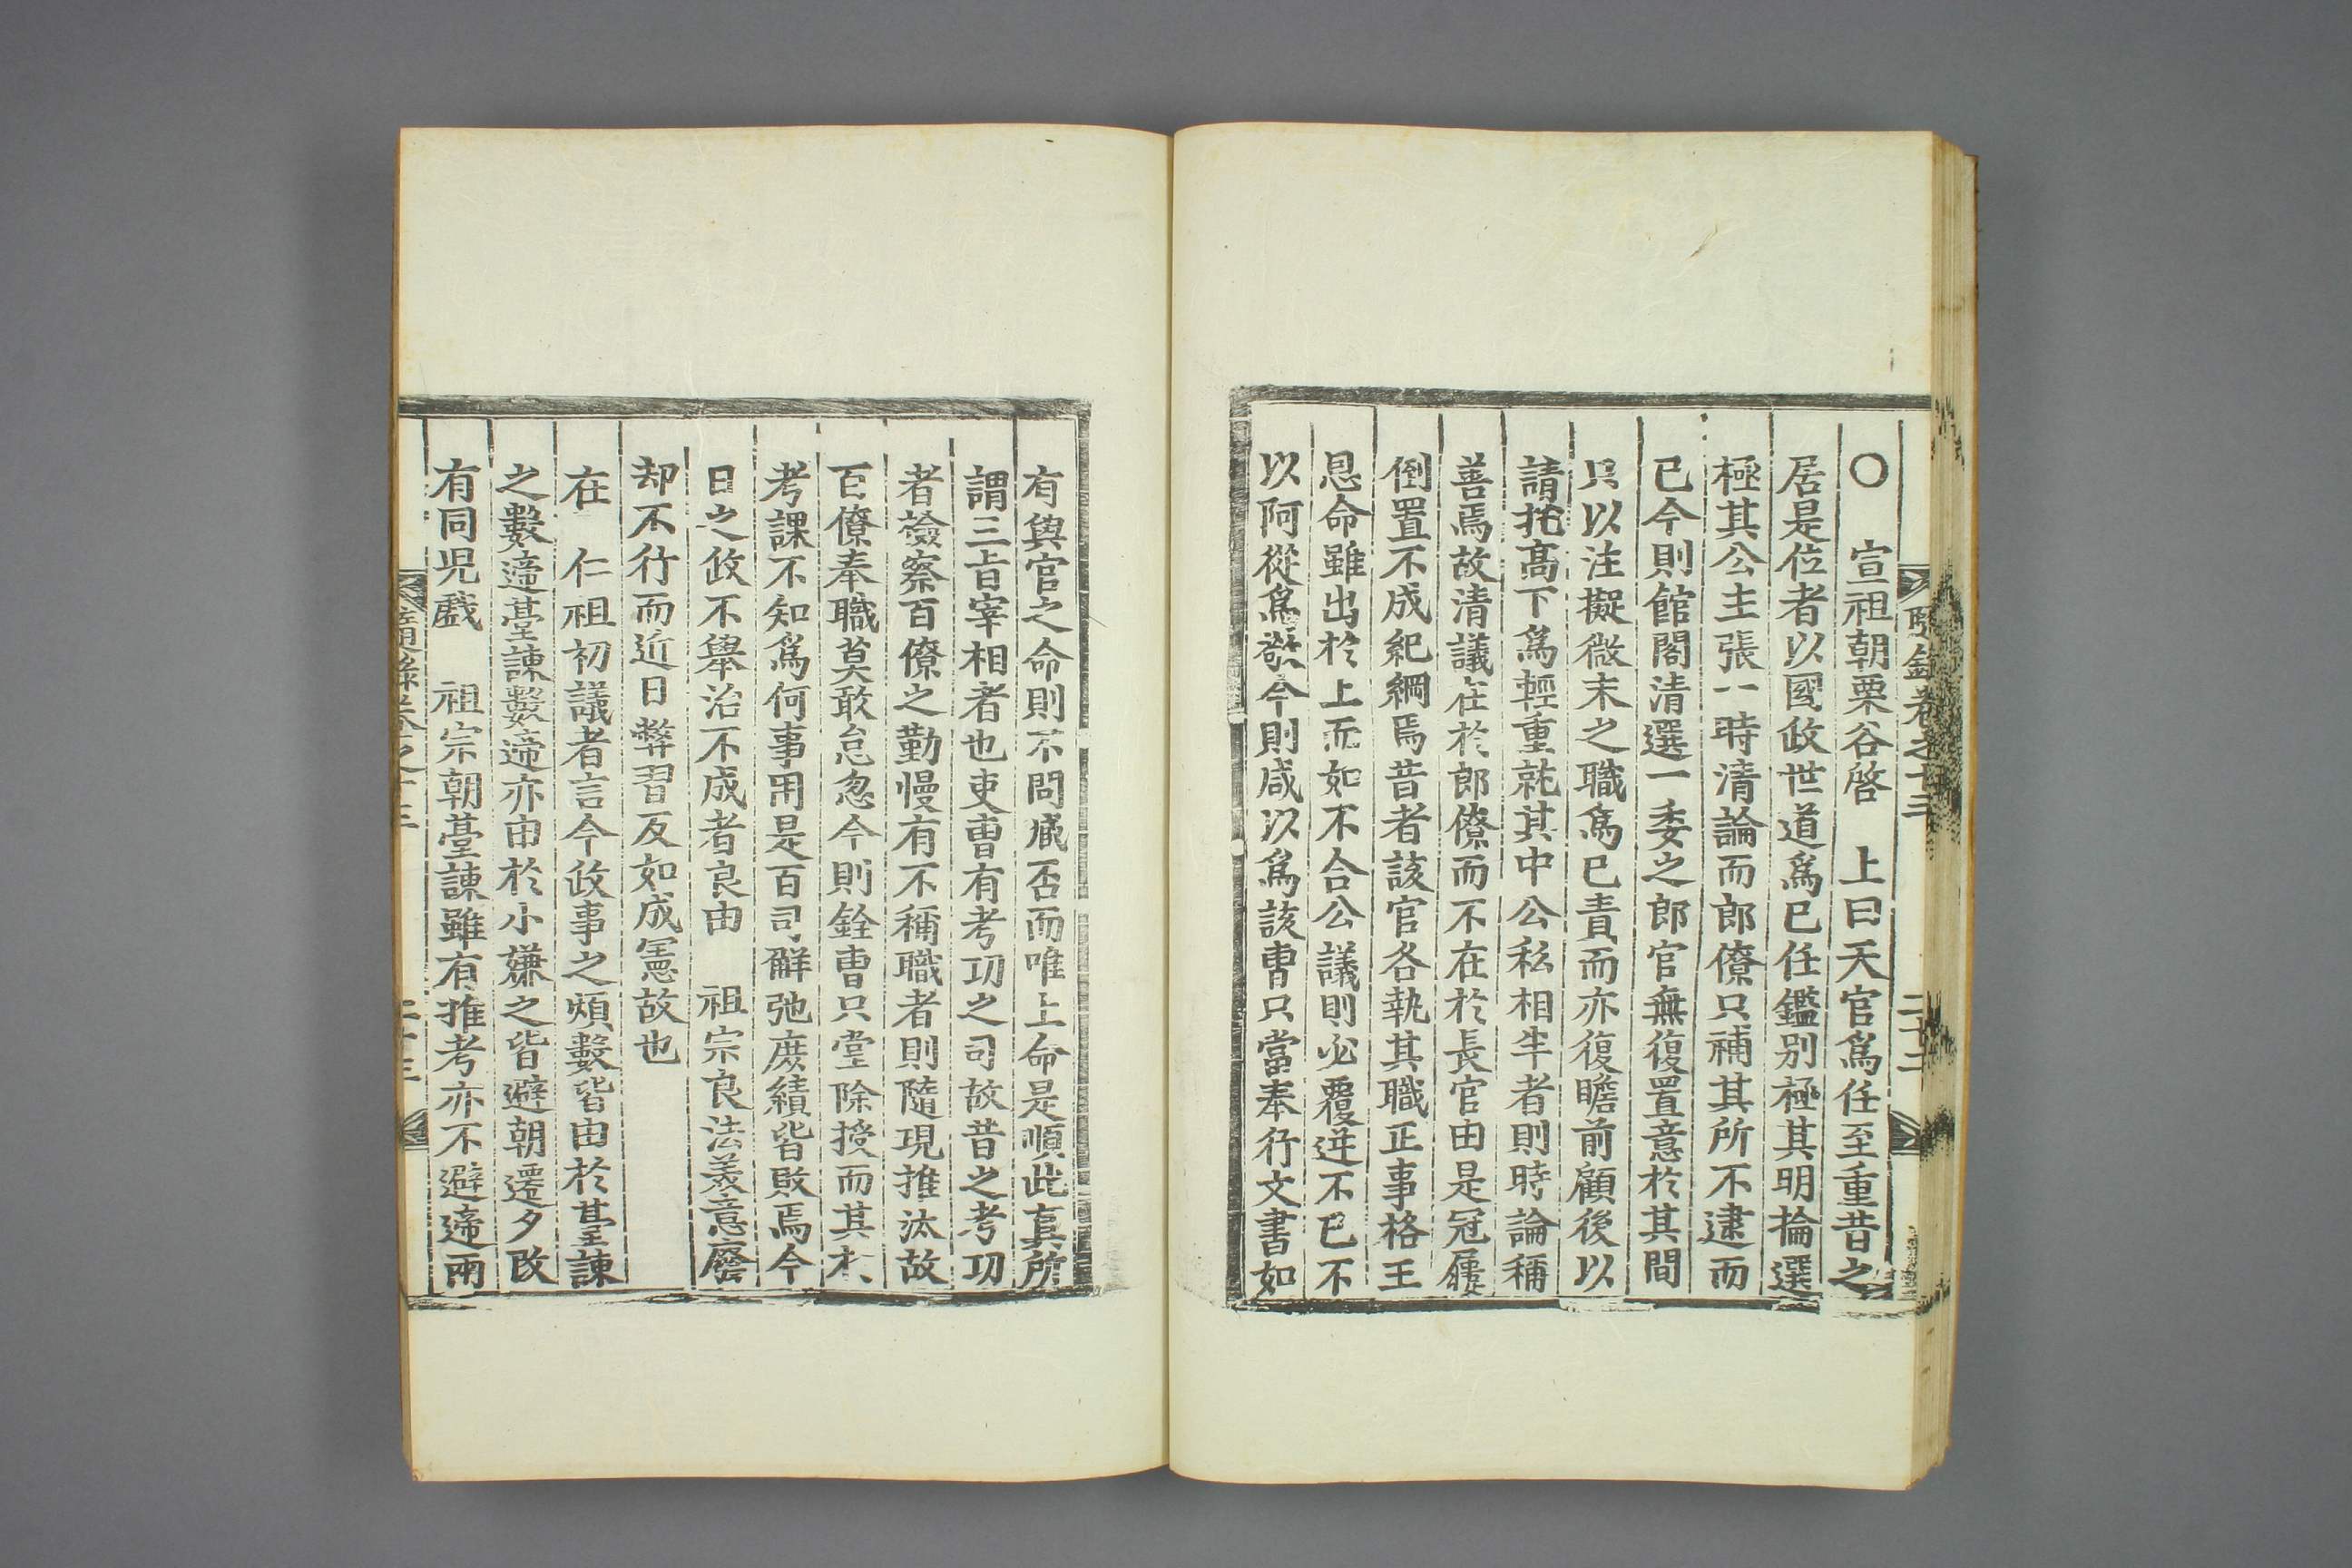 ○　宣祖朝栗谷啓　上曰天官爲任至重昔之
居是位者以國政世道爲已任鑑別極其明掄選
極其公主張一時清論而郎僚只補其所不逮而
已今則館閣清選一委之郎官無復置意於其間
只以注擬微末之職爲已責而亦復瞻前顧後以
請托高下爲輕重就其中公私相半者則時論稱
善焉故清議在於郎僚而不在於長官由是冠屨
倒置不成紀綱焉昔者該官各執其職正事格王
恩命雖出於上而如不合公議則必覆逆不已不
以阿從爲恭今則咸以爲該曺只當奉行文書如
有與官之命則不問臧否而唯上命是順此眞所
謂三旨宰相者也吏曺有考功之司故昔之考功
者檢察百僚之勤慢有不稱職者則隨現推汰故
百僚奉職莫敢怠忽今則銓曺只掌除授而其於
考課不知爲何事用是百司解弛庶績皆敗焉今
日之政不擧治不成者良由　祖宗良法義意廢
却不行而近日弊習反如成憲故也
在　仁祖初議者言今政事之煩數皆由於臺諫
之數遞臺諫數遞亦由於小嫌之皆避朝遷夕改
有同兒戲　祖宗朝臺諫雖有推考亦不避遞兩
卷之十三
二十二